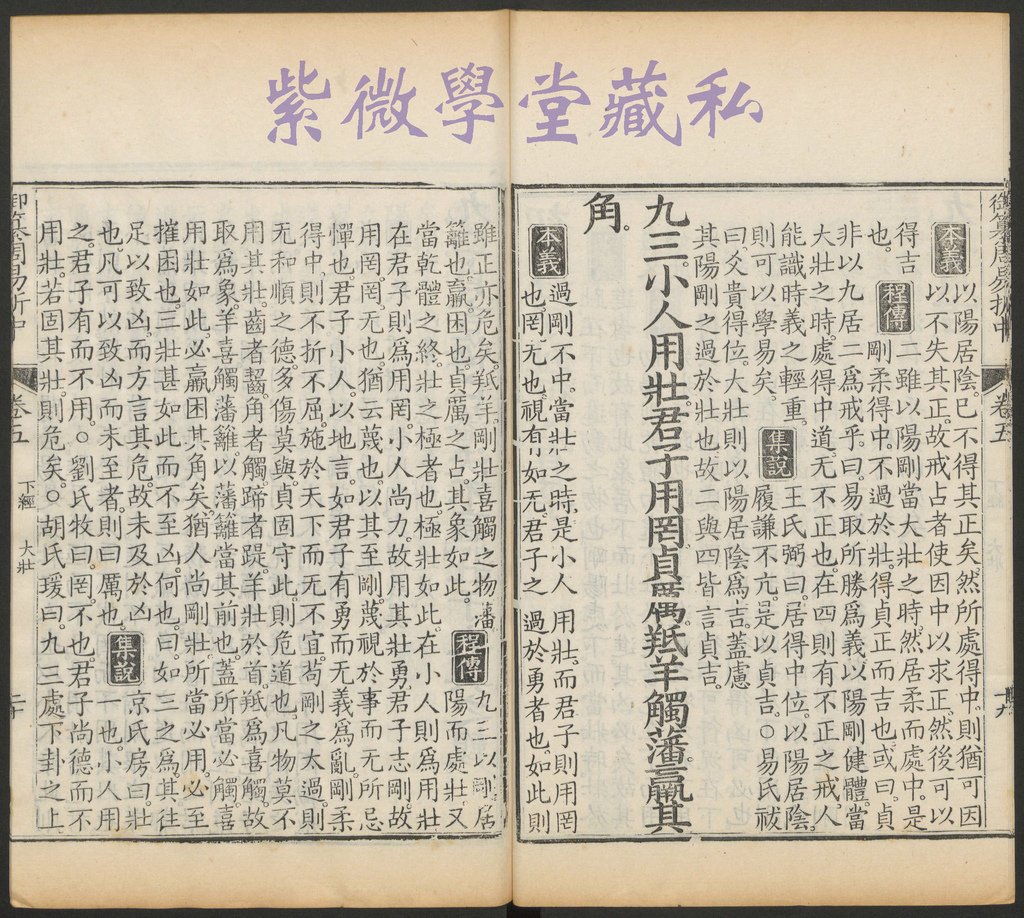 紫微學堂藏私
御纂周易折中 卷五 十九
本義 以陽居陰。已不得其正矣。然所處得中。則猶可因
以不失其正。故戒占者使因中以求正。然後可以
得吉 程傳 二雖以陽剛當大壯之時。然居柔而處中。是
也。 剛柔得中。不過於壯。得貞正而吉也。或曰。貞
非以九居二爲戒乎。曰。易取所勝爲義。以陽剛健體。當
大壯之時。處得中道。无不正也。在四則有不正之戒。人
能識時義之輕重。 集說 王氏弼曰。居得中位。以陽居陰。
則可以學易矣。 履謙不亢。是以貞吉。○易氏祓
曰。爻貴得位。大壯則以陽居陰爲吉。蓋慮
其陽剛之過於壯也。故二與四皆言貞吉。
九三小人用壯君子用罔貞厲羝羊觸藩羸其
角。
本義 過剛不中。當壯之時。是小人用壯。而君子則用罔
也。罔。无也。視有如无。君子之過於勇者也。如此則
雖正亦危矣。羝羊。剛壯喜觸之物。藩 程傳 九三以剛居
籬也。羸。困也。貞厲之占。其象如此。 陽而處壯。又
當乾體之終。壯之極者也。極壯如此。在小人則爲用壯。
在君子則爲用罔。小人尚力。故用其壯勇。君子志剛。故
用罔。罔。无也。猶云蔑也。以其至剛。蔑視於事。而无所忌
憚也。君子小人。以地言。如君子有勇而无義爲亂。剛柔
得中。則不折不屈。施於天下而无不宜。苟剛之太過。則
无和順之德。多傷莫與。貞固守此。則危道也。凡物莫不
用其壯。齒者齧。角者觸。蹄者踶。羊壯於首。羝爲喜觸。故
取爲象。羊喜觸藩籬。以藩籬當其前也。蓋所當必觸。喜
用壯如此。必羸困其角矣。猶人尚剛壯。所當必用。必至
摧困也。三壯甚如此。而不至凶。何也。曰。如三之爲。其往
足以致凶。而方言其危。故未及於凶 集說 京氏房曰。壯
也。凡可以致凶而未至者。則曰厲也。 一也。小人用
之。君子有而不用。○劉氏牧曰。罔。不也。君子尚德而不
用壯。若固其壯。則危矣。○胡氏瑗曰。九三處下卦之上。
御纂周易折中 卷五 下經 大壯 二十